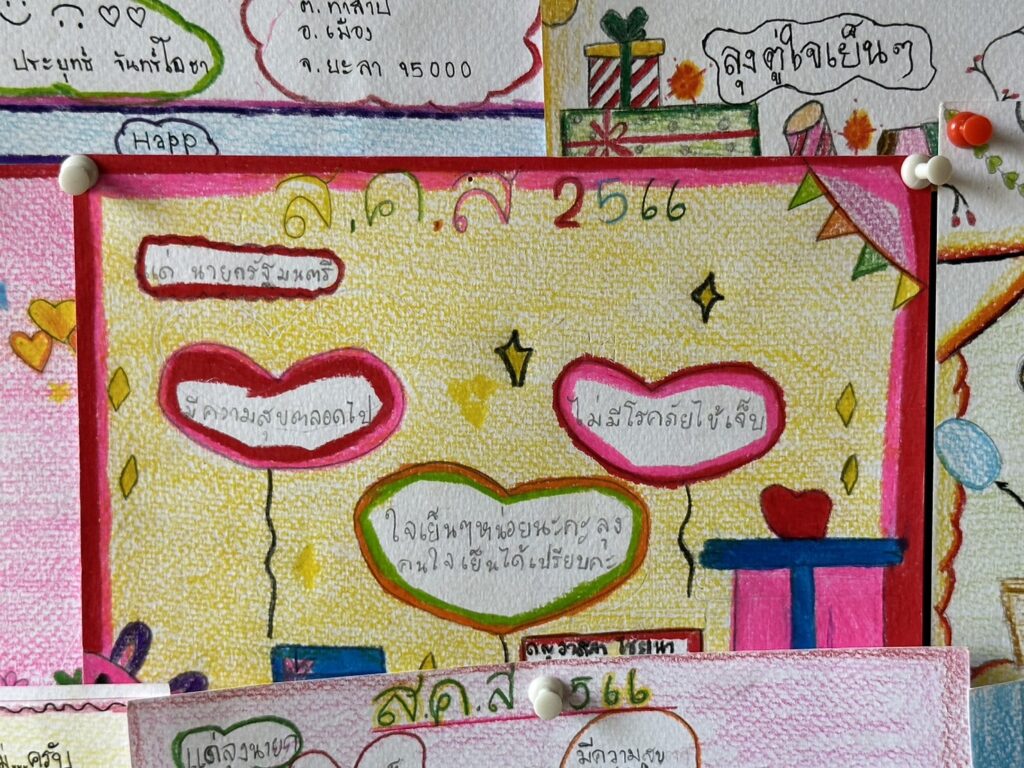 ประยุทธ์ จันทร์โอชา
ต. ท่าสาป
อ. เมือง
จ. ยะลา 95000
ลุงตู่ใจเย็นๆ
Happ
ส.ค.ส 2566
แด่ นายกรัฐมนตรี
มีความสุขตลอดไป
ไม่มีโรคภัยไข้เจ็บ
ใจเย็นๆหน่อยนะคะลุง
คนใจเย็นได้เปรียบคะ
ส.ค.ส 2566
แด่ลุงนายก
มีความสุข
ครับ